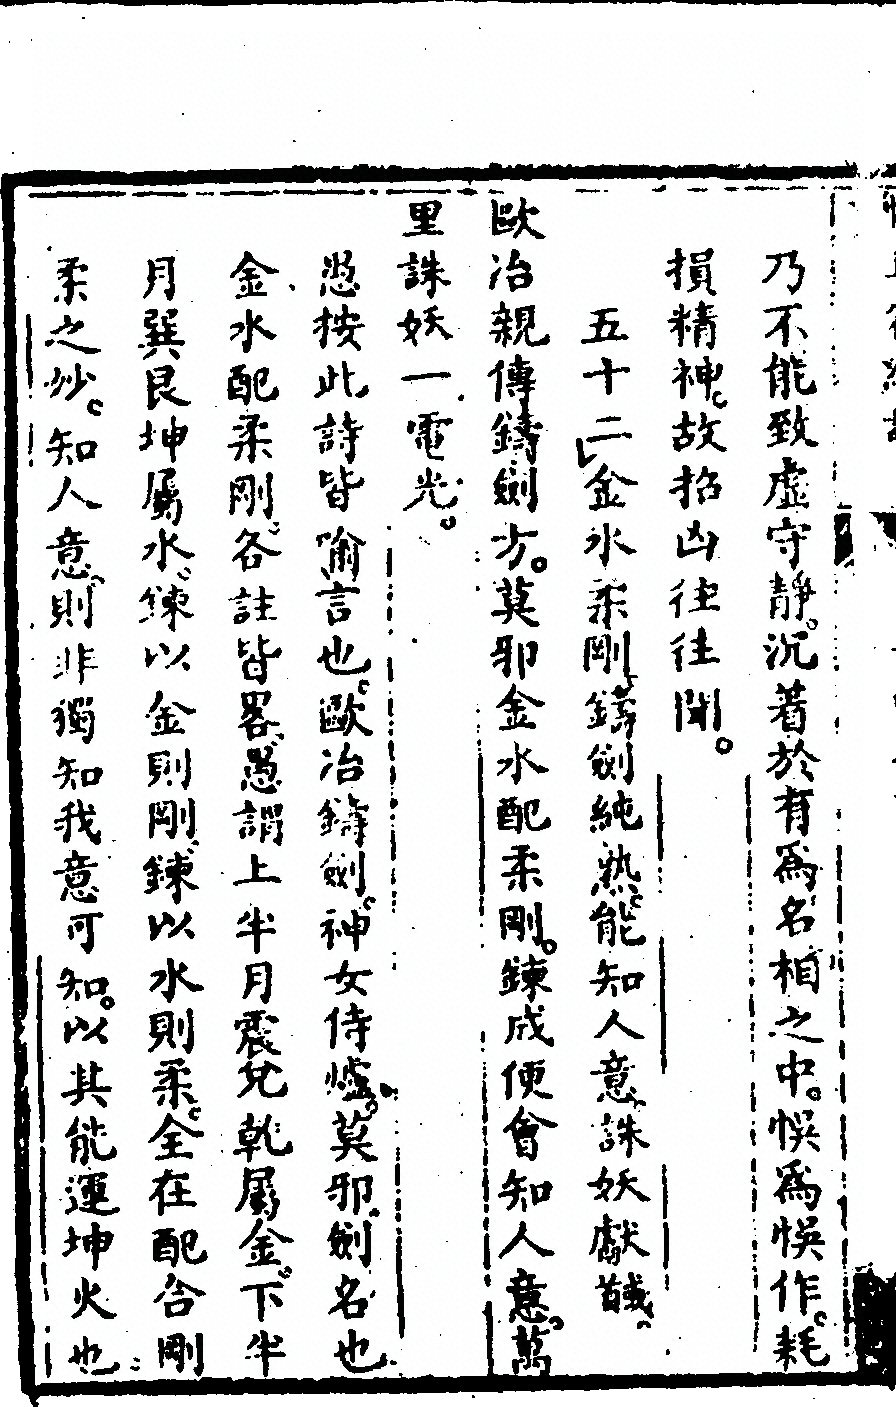 乃不能致虛守靜。沉着於有爲名相之中。悞爲悞作。耗
損精神。故招凶往往聞。
五十二金水柔剛鑄劍純熟。能知人意誅妖獻馘。
歐冶親傳鑄劍方。莫邪金水配柔剛。鍊成便會知人意。萬
里誅妖一電光。
愚按此詩皆喻言也。歐冶鑄劍。神女侍爐。莫邪。劍名也
金水配柔剛。各註皆畧。愚謂上半月震兌乾屬金。下半
月巽艮坤屬水。鍊以金則剛。鍊以水則柔。全在配合剛
柔之妙。知人意。則非獨知我意可知。以其能運坤火也